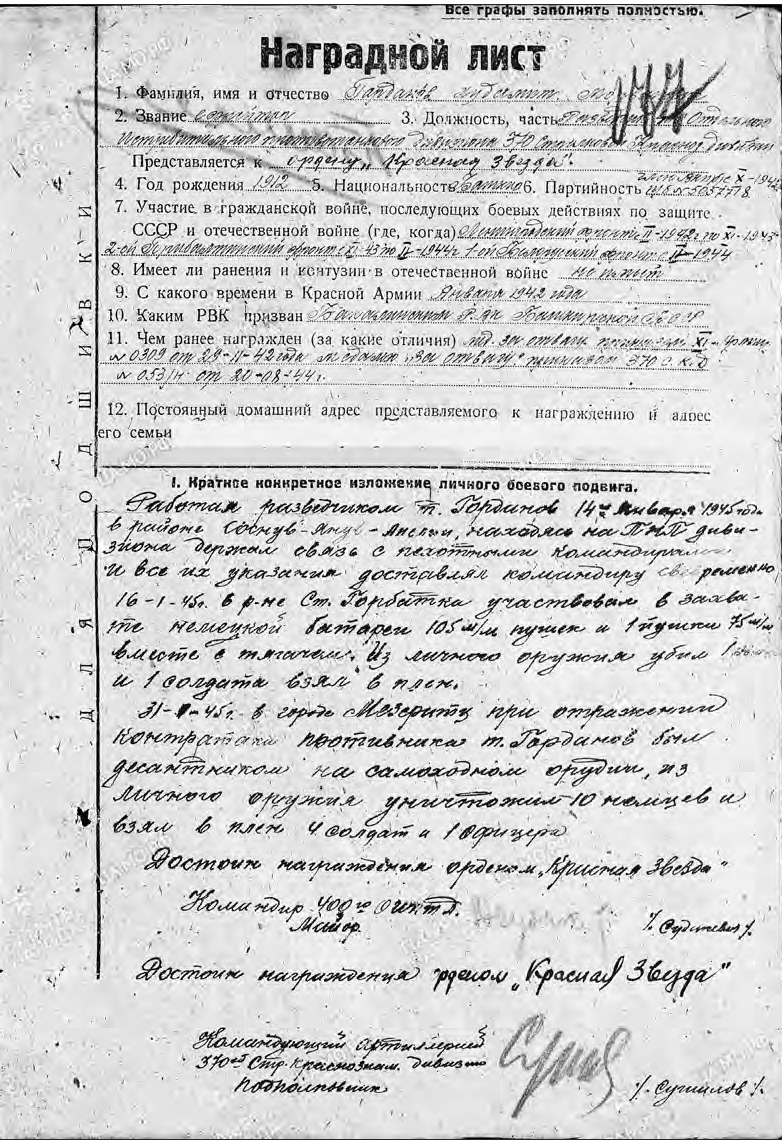 Все графы заполнять полностью.
Наградной лист
1. Фамилия, имя и отчество Гарданов
2. Звание 3. Должность, часть Отдельного
Истребительного противотанкового дивизиона 370 Стрелковой Краснозн. дивизии
Представляется к ордену „Красная Звезда"
X-1942
4. Год рождения 1912 5. Национальность 6. Партийность № 5057718
7. Участие в гражданской войне, последующих боевых действиях по защите
СССР и отечественной войне (где, когда) Ленинградский фронт с II-1942г по XI-1943
2-ой Прибалтийский фронт с XI-43 по IV-1944г 1-ой Белорусский фронт с IV-1944
8. Имеет ли ранения и контузии в отечественной войне не имеет
9. С какого времени в Красной Армии Января 1942 года
10. Каким РВК призван РВК Башкирской АССР
11. Чем ранее награжден (за какие отличия) мед. за отвагу приказом XI-
№ 0309 от 29-11-42 года медалью „За отвагу" приказом 370 с.к.д
№ 053/н от 20-08-44г.
12. Постоянный домашний адрес представляемого к награждению и адрес
его семьи
ДЛЯ ПОДШИВКИ
I. Краткое конкретное изложение личного боевого подвига.
Работая разведчиком т. Горданов 14го января 1945 года
в районе находясь на ПНП диви-
зиона держал связь с пехотными командирами
и все их указания доставлял командиру своевременно
16-1-45г. в р-не Ст. Горбатка участвовал в захва-
те немецкой батареи 105 м/м пушек и 1 пушки 75 м/м
вместе с тягачем. Из личного оружия убил 1
и 1 солдата взял в плен.
31-1-45г. в городе Мезеритц при отражении
контратаки противника т. Горданов был
десантником на самоходном орудии, из
личного оружия уничтожил 10 немцев и
взял в плен 4 солдат и 1 офицера
Достоин награждения орденом „Красная Звезда"
Командир 400го ОИПТД.
Майор /. Судиневич /.
Достоин награждения орденом „Красная Звезда"
Командующий Артиллерией
370ой Стр. Краснознам. дивизии
Подполковник /. Сушилов /.